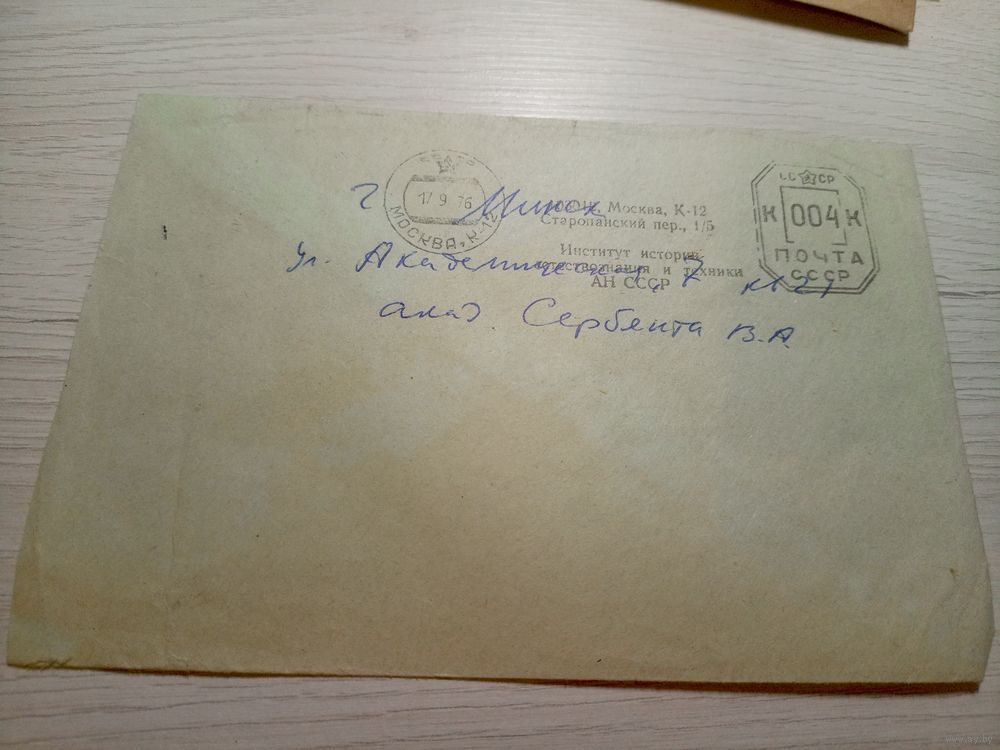 СССР
17 9 76
МОСКВА, К-12
К 004 К
ПОЧТА
СССР
Москва, К-12
Старопанский пер., 1/5
Институт истории
естествознания и техники
АН СССР
г Минск
ул. Академическая, 7 кв 21
акад. Сербента В.А.
www.ay.by